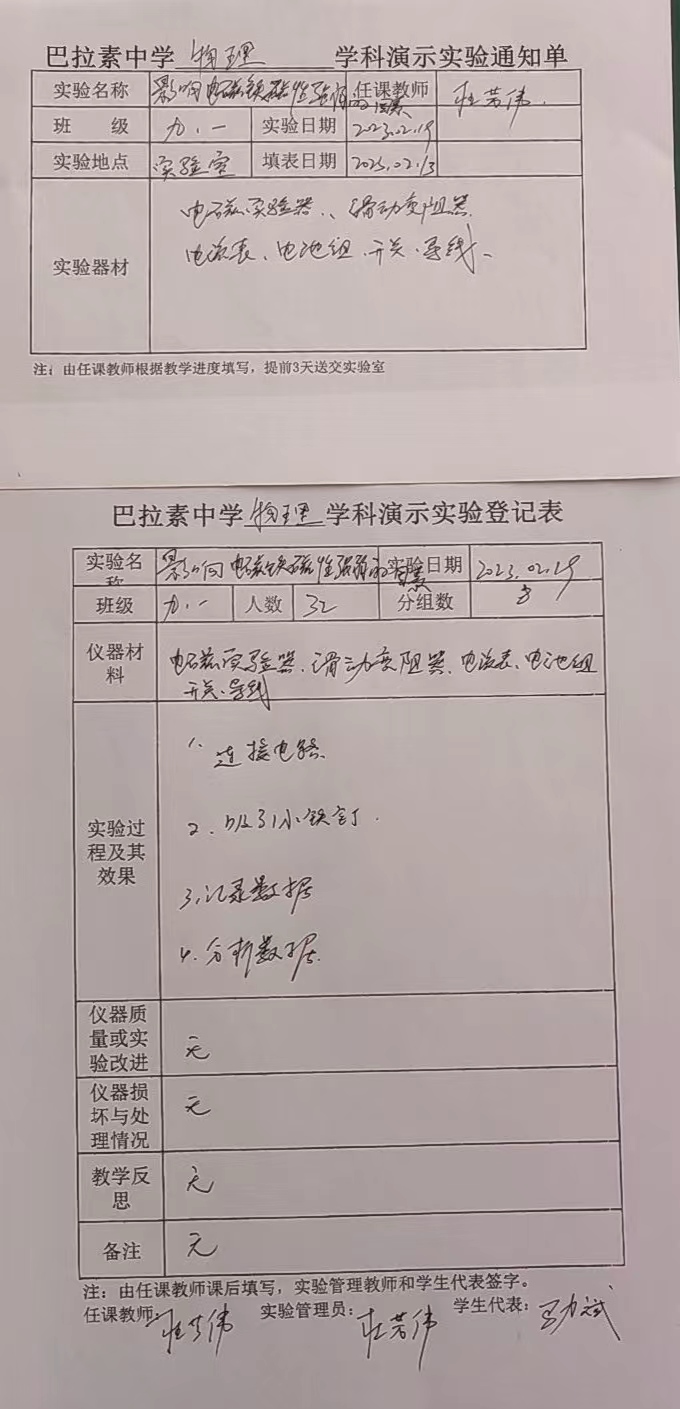 巴拉素中学 物理 学科演示实验通知单
实验名称 影响电磁铁磁性强弱的因素 任课教师 杜芳伟
班 级 九.一 实验日期 2023.02.19
实验地点 实验室 填表日期 2023.02.13
实验器材
电磁实验器、滑动变阻器
电流表、电池组、开关、导线、
注：由任课教师根据教学进度填写，提前3天送交实验室
巴拉素中学 物理 学科演示实验登记表
实验名称 影响电磁铁磁性强弱的因素 实验日期 2023.02.19
班级 九.一 人数 32 分组数
仪器材料
电磁实验器、滑动变阻器、电流表、电池组
开关、导线
实验过程及其效果
1. 连接电路
2. 吸引小铁钉.
3. 记录数据
4. 分析数据.
仪器质量或实验改进 无
仪器损坏与处理情况 无
教学反思 无
备注 无
注：由任课教师课后填写，实验管理教师和学生代表签字。
任课教师：杜芳伟 实验管理员：杜芳伟 学生代表：